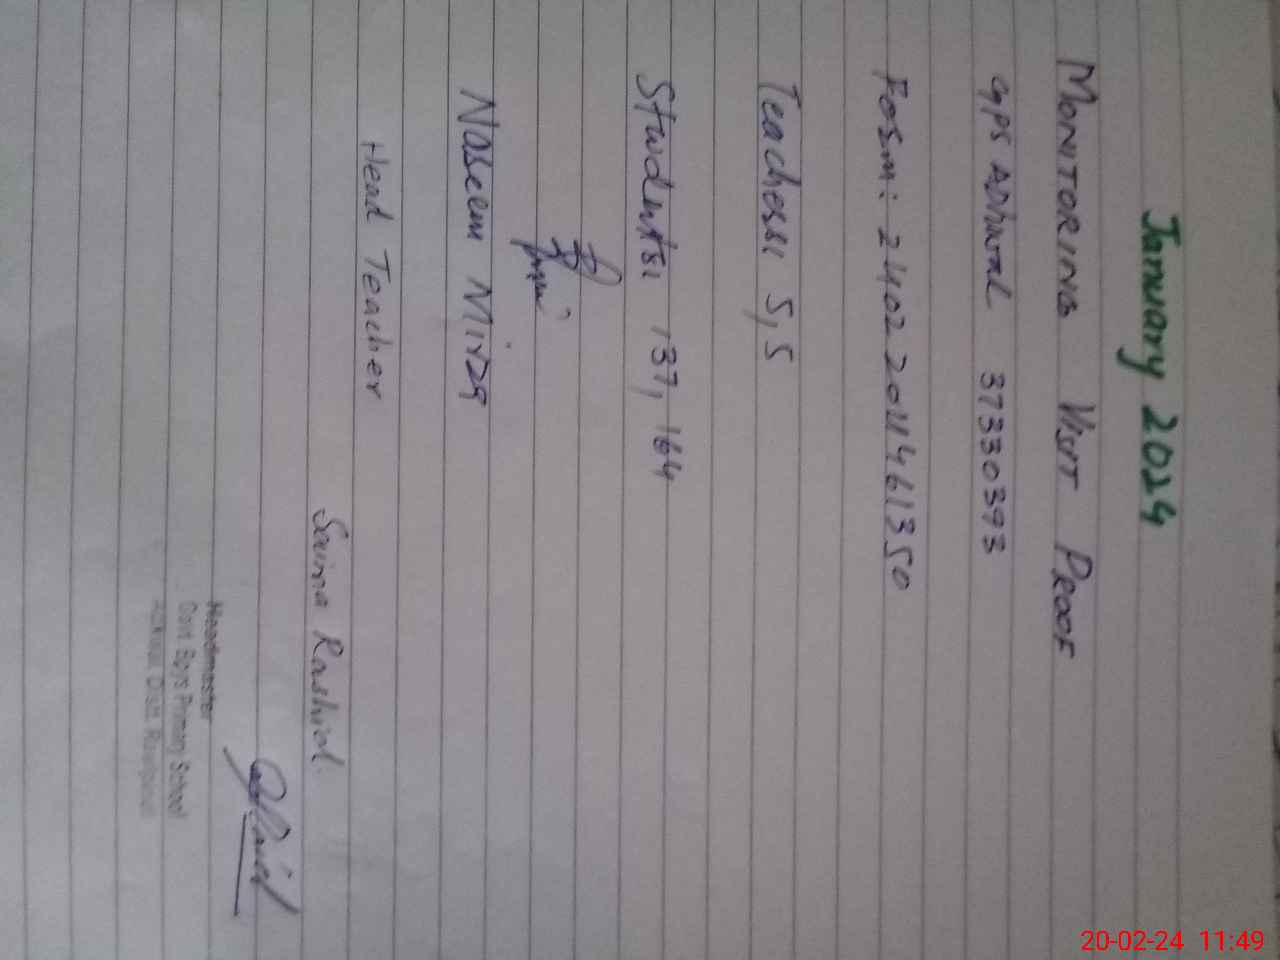 January 2024
MONITORING VISIT PROOF
GPS ADhwal 37330393
Form: 2402 2011461350
Teachers: 5,5
Students: 137, 164
Naseem Mirza
Head Teacher
Saima Rashid.
Headmaster
Govt Boys Primary School
Distt. Rawalpindi
20-02-24 11:49